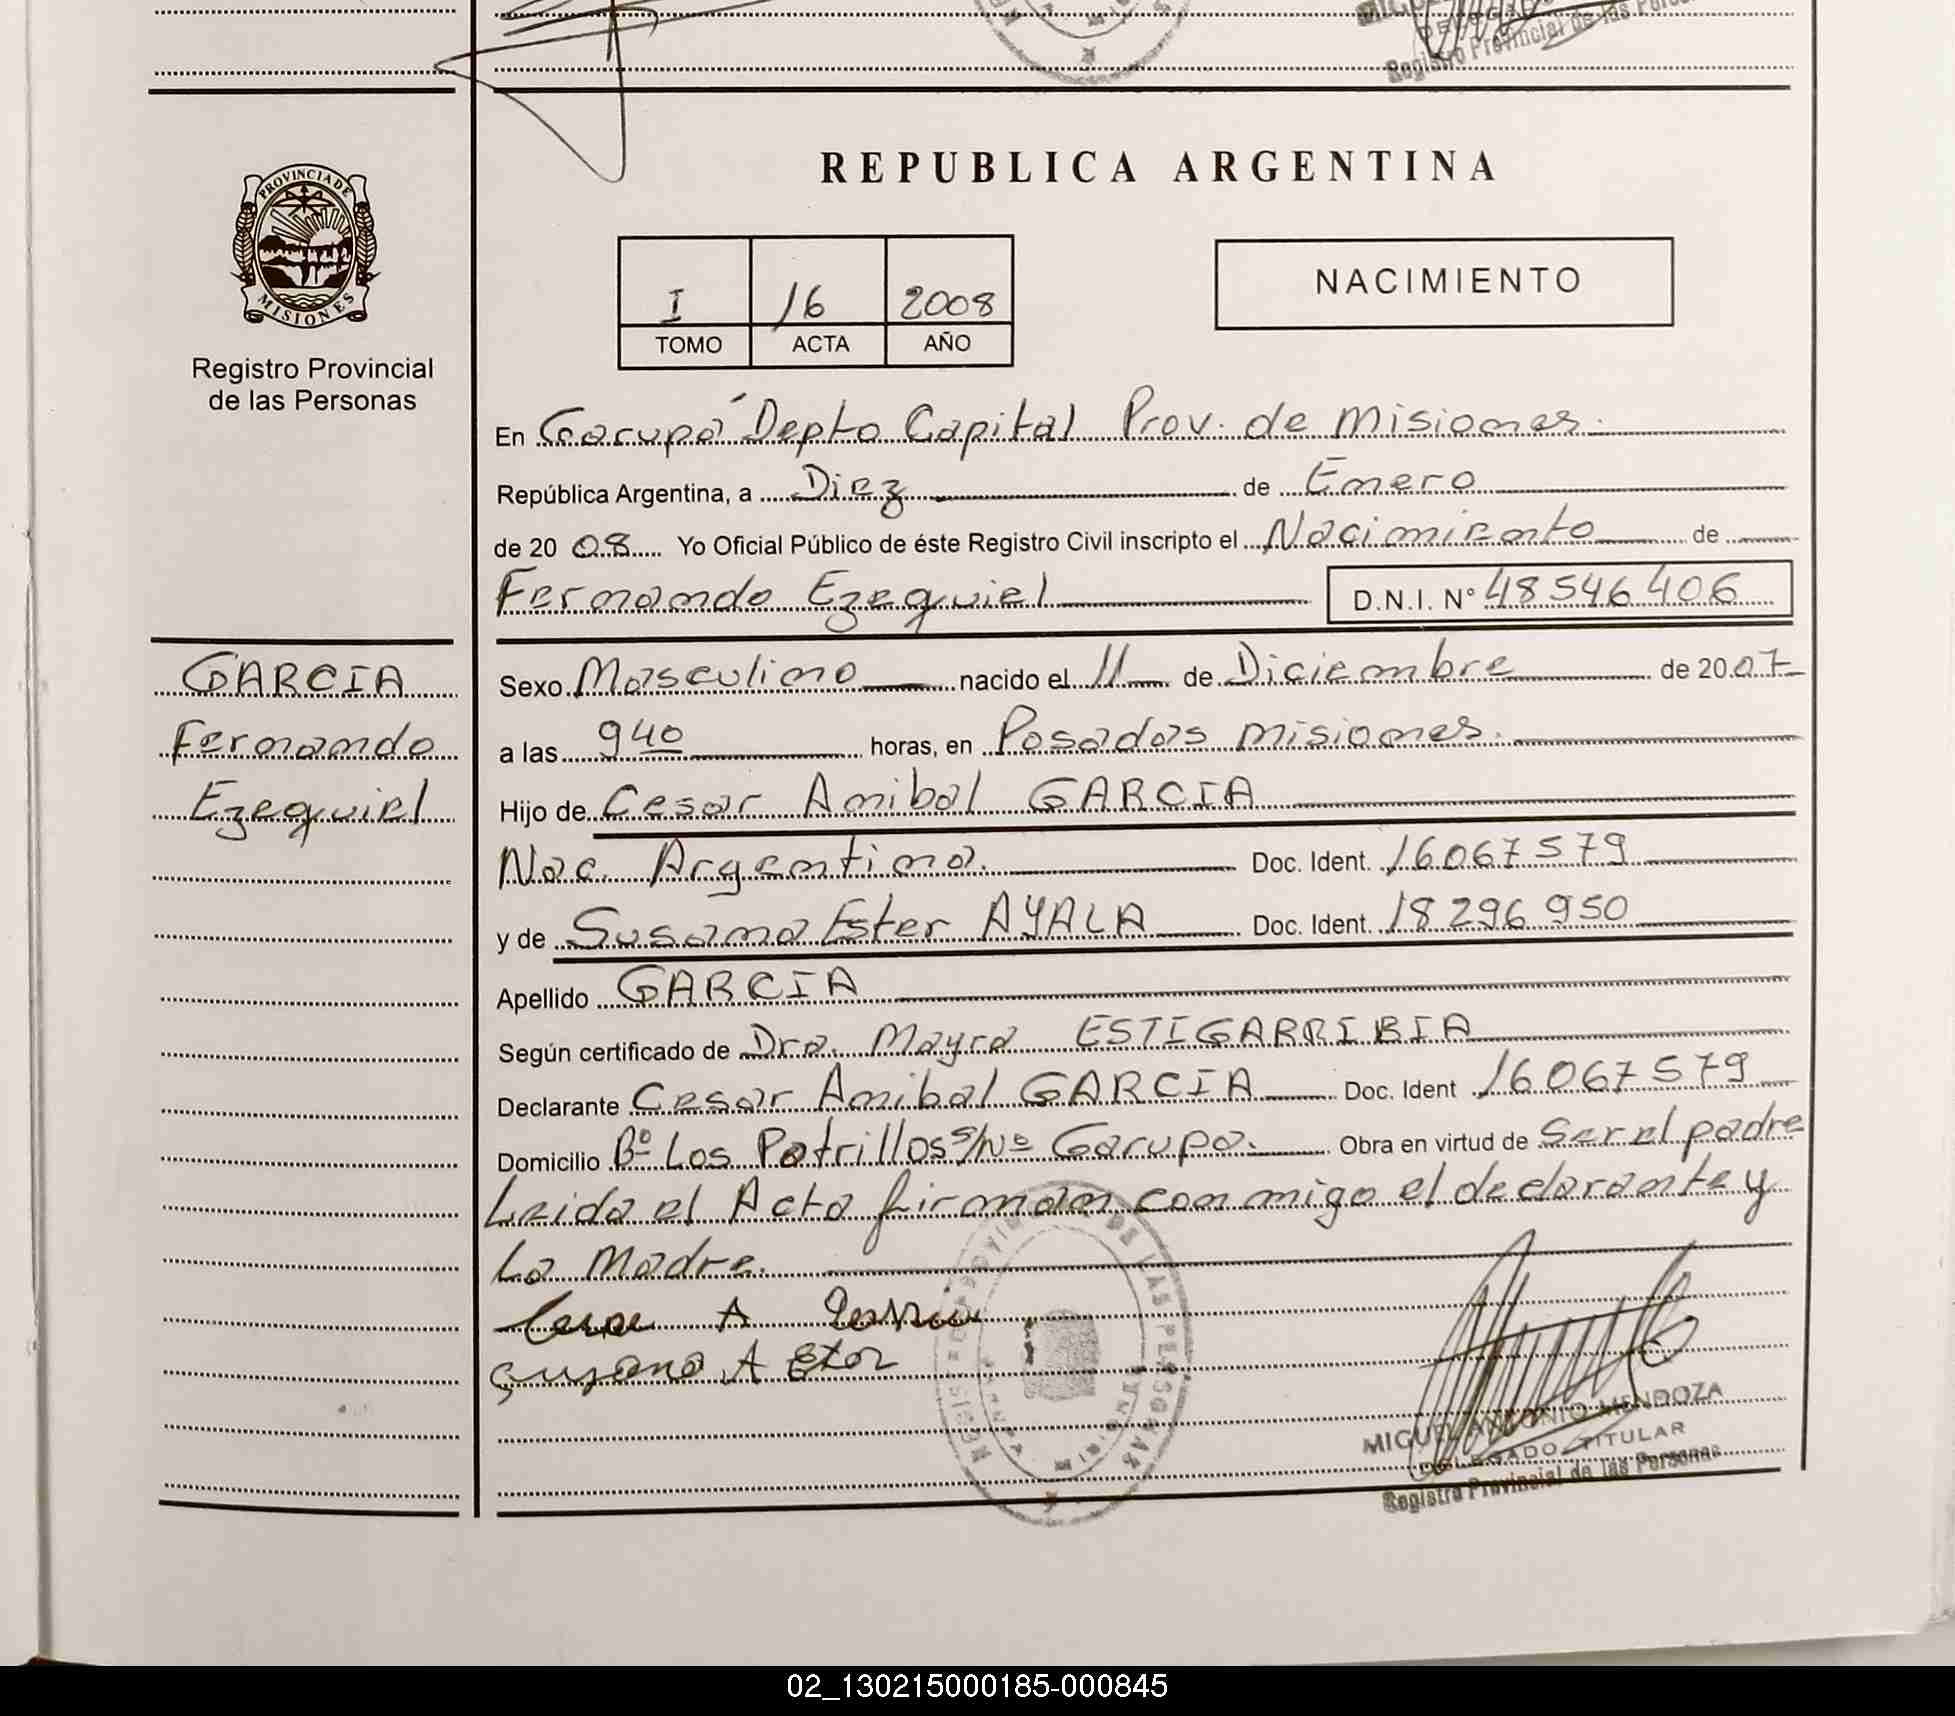 Registro Provincial de las Personas
REPUBLICA ARGENTINA
PROVINCIA DE
MISIONES
Registro Provincial
de las Personas
I 16 2008
TOMO ACTA AÑO
NACIMIENTO
En Garupá Depto Capital Prov. de Misiones.
República Argentina, a Diez de Enero
de 20 08 Yo Oficial Público de éste Registro Civil inscripto el Nacimiento de
Fernando Ezequiel D.N.I. N° 48546406
GARCIA
Fernando
Ezequiel
Sexo Masculino nacido el 11 de Diciembre de 20 07
a las 9 40 horas, en Posadas Misiones.
Hijo de Cesar Anibal GARCIA
Nac. Argentina. Doc. Ident. 16067579
y de Susana Ester AYALA Doc. Ident. 18296950
Apellido GARCIA
Según certificado de Dra. Mayra ESTIGARRIBIA
Declarante Cesar Anibal GARCIA Doc. Ident 16067579
Domicilio Bº Los Potrillos s/Nº Garupa. Obra en virtud de Ser el padre
Leida el Acta firman conmigo el declarante y
La Madre.
MIGUEL ANTONIO MENDOZA
DELEGADO TITULAR
Registro Provincial de las Personas
02_130215000185-000845